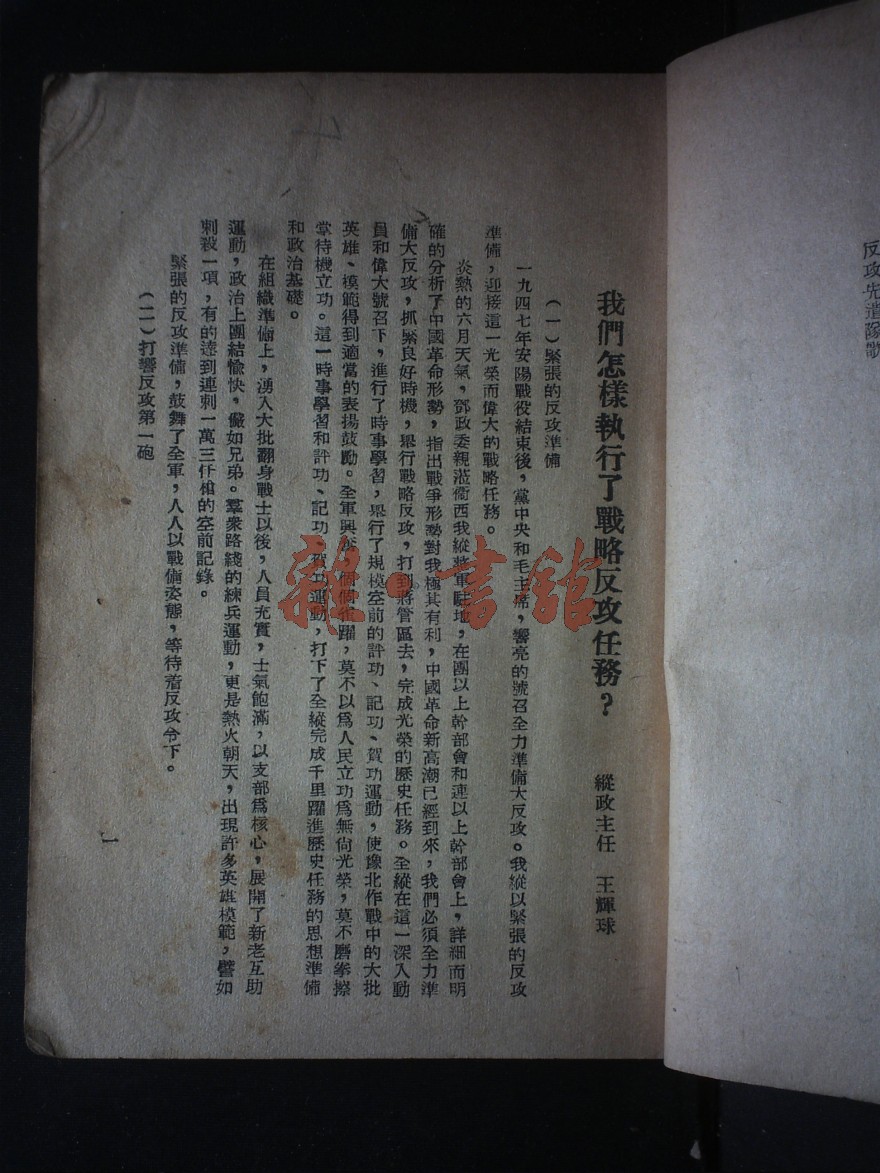 反攻先遣隊歌
我們怎樣執行了戰略反攻任務？　縱政主任　王輝球
（一）緊張的反攻準備
一九四七年安陽戰役結束後，黨中央和毛主席，響亮的號召全力準備大反攻。我縱以緊張的反攻
準備，迎接這一光榮而偉大的戰略任務。
炎熱的六月天氣，鄧政委親蒞衞西我縱將軍駐地，在團以上幹部會和連以上幹部會上，詳細而明
確的分析了中國革命形勢，指出戰爭形勢對我極其有利，中國革命新高潮已經到來，我們必須全力準
備大反攻，抓緊良好時機，舉行戰略反攻，打到蔣管區去，完成光榮的歷史任務。全縱在這一深入動
員和偉大號召下，進行了時事學習，舉行了規模空前的評功、記功、賀功運動，使豫北作戰中的大批
英雄、模範得到適當的表揚鼓勵。全軍興奮，個個雀躍，莫不以爲人民立功爲無尙光榮，莫不磨拳擦
掌待機立功。這一時事學習和評功、記功、賀功運動，打下了全縱完成千里躍進歷史任務的思想準備
和政治基礎。
在組織準備上，湧入大批翻身戰士以後，人員充實，士氣飽滿，以支部爲核心，展開了新老互助
運動，政治上團結愉快，儼如兄弟。羣衆路綫的練兵運動，更是熱火朝天，出現許多英雄模範，譬如
刺殺一項，有的達到連刺一萬三仟槍的空前記錄。
緊張的反攻準備，鼓舞了全軍，人人以戰備姿態，等待着反攻令下。
（二）打響反攻第一砲
一
雜·書館